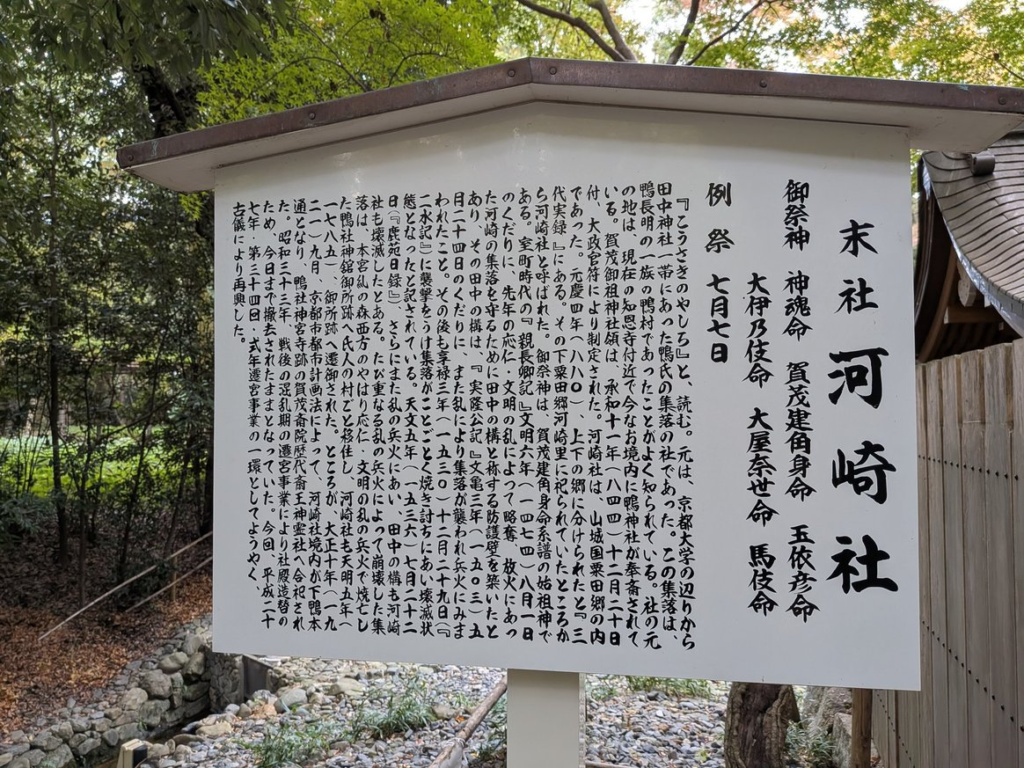 末社 河崎社
御祭神 神魂命 賀茂建角身命 玉依彦命
大伊乃伎命 大屋奈世命 馬伎命
例祭 七月七日
『こうさきのやしろ』と、読む。元は、京都大学の辺りから
田中神社一帯にあった鴨氏の集落の社であった。この集落は、
鴨長明の一族の鴨村であったことがよく知られている。社の元
の地は、現在の知恩寺付近で今なお境内に鴨神社が奉斎されて
いる。賀茂御祖神社領は、承和十一年(八四四)十二月二十日
付、大政官符により制定された。河崎社は、山城国粟田郷の内
であった。元慶四年(八八〇)、上下の郷に分けられたと『三
代実録』にある。その下粟田郷河崎里に祀られていたところか
ら河崎社と呼ばれた。御祭神は、賀茂建角身命系譜の始祖神で
ある。室町時代の『親長卿記』文明六年(一四七四)八月一日
のくだりに、先年の応仁・文明の乱によって略奪、放火にあっ
た河崎の集落を守るために田中の構と称する防護壁を築いたと
あり、その田中の構は、『実隆公記』文亀三年(一五〇三)五
月二十四日のくだりに、また乱により集落が襲われ兵火にみま
われたこと。その後も享禄三年(一五三〇)十二月二十九日(『
二水記』に襲撃をうけ集落がことごとく焼き討ちにあい壊滅状
態となったと記されている。天文五年(一五三六)七月二十二
日(『鹿苑日録』)、さらにまた乱の兵火にあい、田中の構も河崎
社も壊滅したとある。たび重なる乱の兵火によって崩壊した集
落は、本宮乱の森西方のやはり応仁・文明の乱の兵火で焼亡し
た鴨社神館御所跡へ氏人の村ごと移住し、河崎社も天明五年(
一七八五)、御所跡へ遷御された。ところが、大正十年(一九
二一)九月、京都市都市計画法によって、河崎社境内が下鴨本
通となり、鴨社神宮寺跡の賀茂斎院歴代斎王神霊社へ合祀され
た。昭和三十三年、戦後の混乱期の遷宮事業により社殿造替の
ため、今日まで撤去されたままとなっていた。今回、平成二十
七年・第三十四回・式年遷宮事業の一環としてようやく、
古儀により再興した。